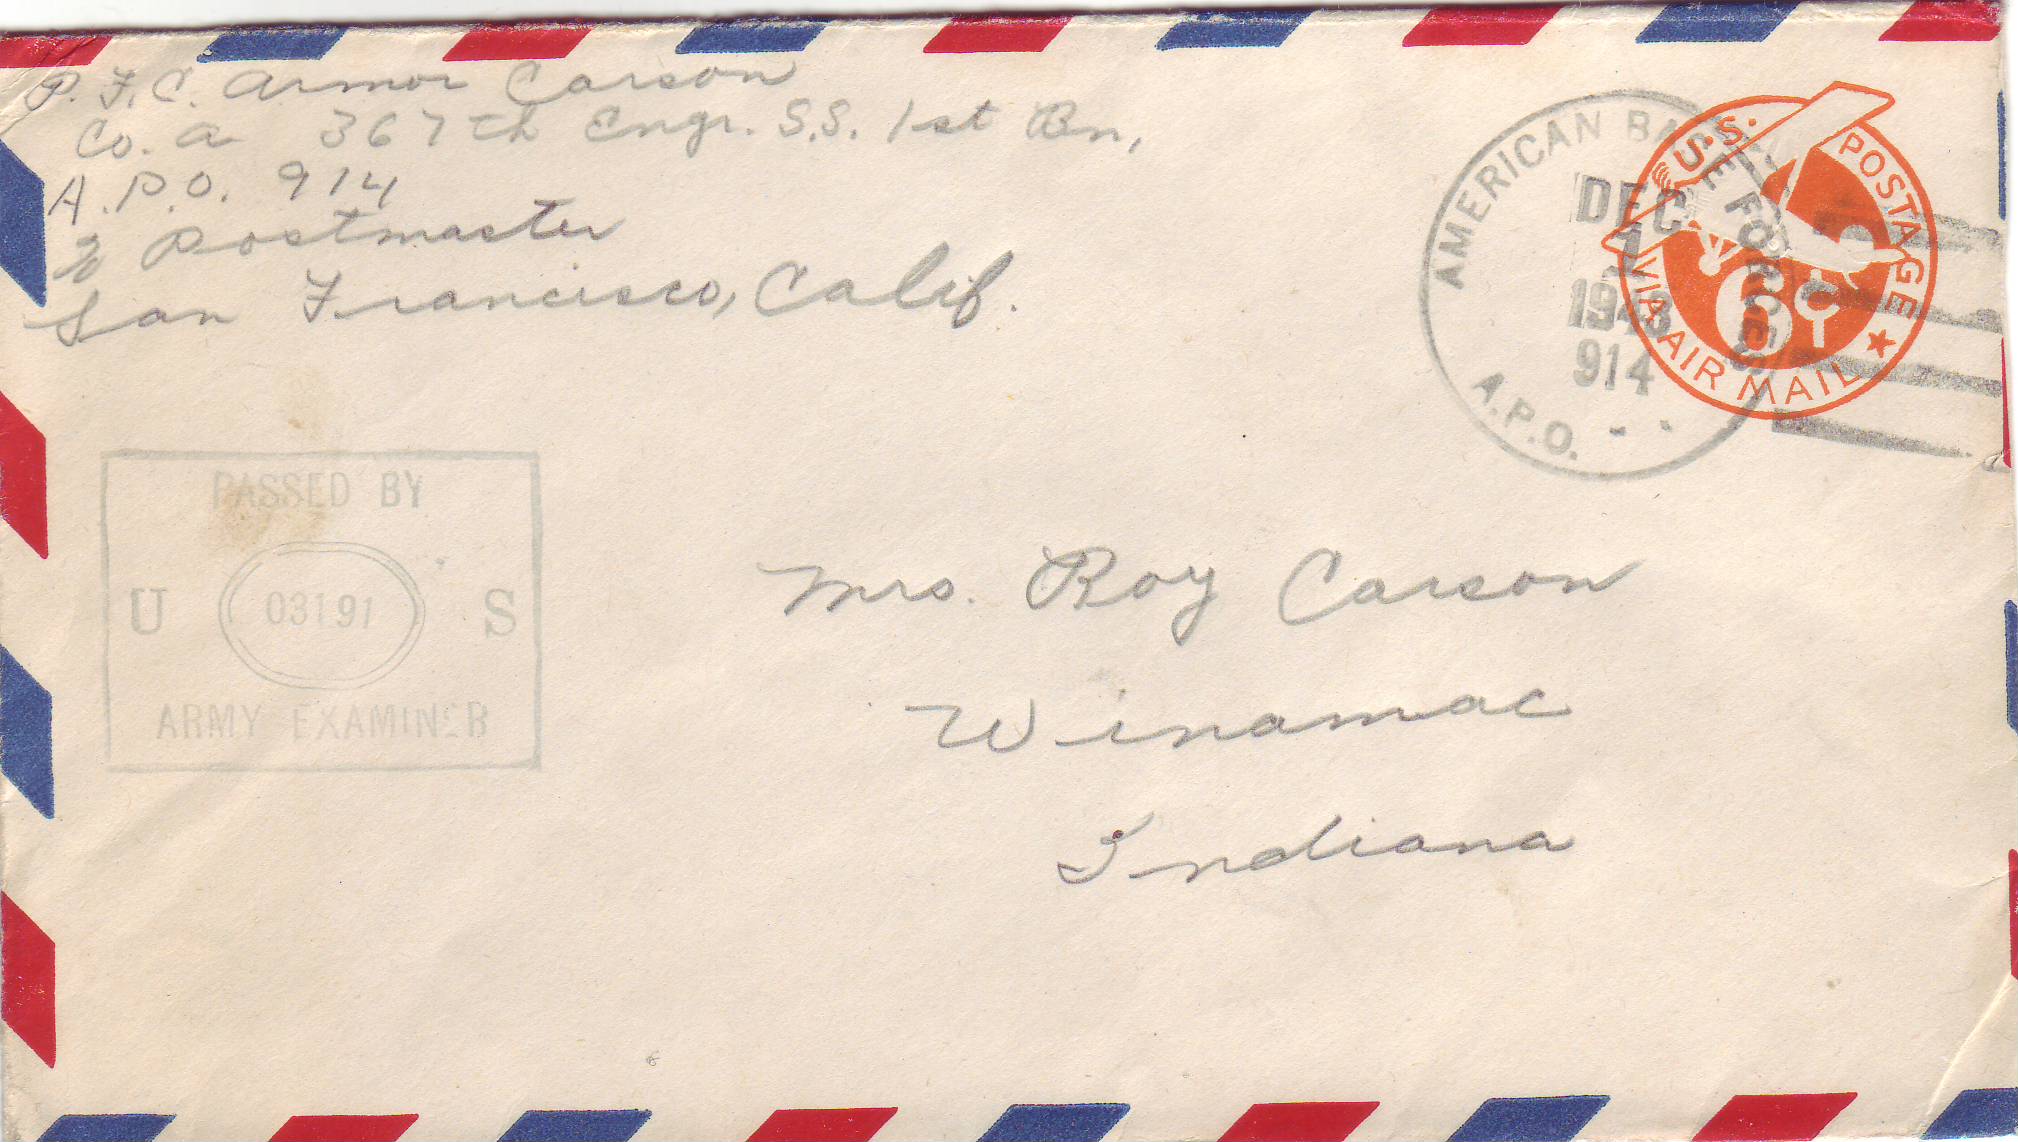 P.F.C. Armor Carson
Co. A 367th Engr. S.S. 1st Bn,
A.P.O. 914
% Postmaster
San Francisco, Calif.
AMERICAN BASE FORCES
DEC
1
1943
914
A.P.O.
U.S. POSTAGE
6¢
VIA AIR MAIL
PASSED BY
U 03191 S
ARMY EXAMINER
Mrs. Roy Carson
Winamac
Indiana